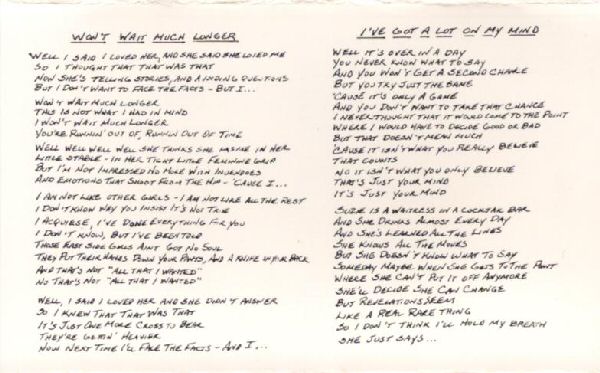 WON'T WAIT MUCH LONGER
WELL I SAID I LOVED HER, AND SHE SAID SHE LOVED ME
SO I THOUGHT THAT THAT WAS THAT
NOW SHE'S TELLING STORIES, AND AVOIDING QUESTIONS
BUT I DON'T WANT TO FACE THE FACTS - BUT I...
WON'T WAIT MUCH LONGER
THIS IS NOT WHAT I HAD IN MIND
I WON'T WAIT MUCH LONGER
YOU'RE RUNNIN' OUT OF, RUNNIN OUT OF TIME
WELL WELL WELL WELL SHE THINKS SHE HAS ME IN HER
LITTLE STABLE - IN HER TIGHT LITTLE FEMININE GRIP
BUT I'M NOT IMPRESSED NO MORE WITH INUENDOES
AND EMOTIONS THAT SHOOT FROM THE HIP - 'CAUSE I...
I AM NOT LIKE OTHER GIRLS - I AM NOT LIKE ALL THE REST
I DON'T KNOW WHY YOU INSIST IT'S NOT TRUE
I ACQUIESE, I'VE DONE EVERYTHING FOR YOU
I DON'T KNOW, BUT I'VE BEEN TOLD
THOSE EAST SIDE GIRLS AINT GOT NO SOUL
THEY PUT THEIR HANDS DOWN YOUR PANTS, AND A KNIFE IN YOUR BACK
AND THAT'S NOT "ALL THAT I WANTED"
NO THAT'S NOT "ALL THAT I WANTED"
WELL, I SAID I LOVED HER AND SHE DIDN'T ANSWER
SO I KNEW THAT THAT WAS THAT
IT'S JUST ONE MORE CROSS TO BEAR
THEY'RE GETTIN' HEAVIER
NOW NEXT TIME I'LL FACE THE FACTS - AND I...
I'VE GOT A LOT ON MY MIND
WELL IT'S OVER IN A DAY
YOU NEVER KNOW WHAT TO SAY
AND YOU WON'T GET A SECOND CHANCE
BUT YOU TRY JUST THE SAME
'CAUSE IT'S ONLY A GAME
AND YOU DON'T WANT TO TAKE THAT CHANCE
I NEVER THOUGHT THAT IT WOULD COME TO THE POINT
WHERE I WOULD HAVE TO DECIDE GOOD OR BAD
BUT THAT DOESN'T MEAN MUCH
'CAUSE IT ISN'T WHAT YOU REALLY BELIEVE
THAT COUNTS
NO IT ISN'T WHAT YOU ONLY BELIEVE
THAT'S JUST YOUR MIND
IT'S JUST YOUR MIND
SUZIE IS A WAITRESS IN A COCKTAIL BAR
AND SHE DRINKS ALMOST EVERY DAY
AND SHE'S LEARNED ALL THE LINES
SHE KNOWS ALL THE MOVES
BUT SHE DOESN'T KNOW WHAT TO SAY
SOMEDAY MAYBE WHEN SHE GETS TO THE POINT
WHERE SHE CAN'T PUT IT OFF ANYMORE
SHE'LL DECIDE SHE CAN CHANGE
BUT REVELATIONS SEEM
LIKE A REAL RARE THING
SO I DON'T THINK I'LL HOLD MY BREATH
SHE JUST SAYS...